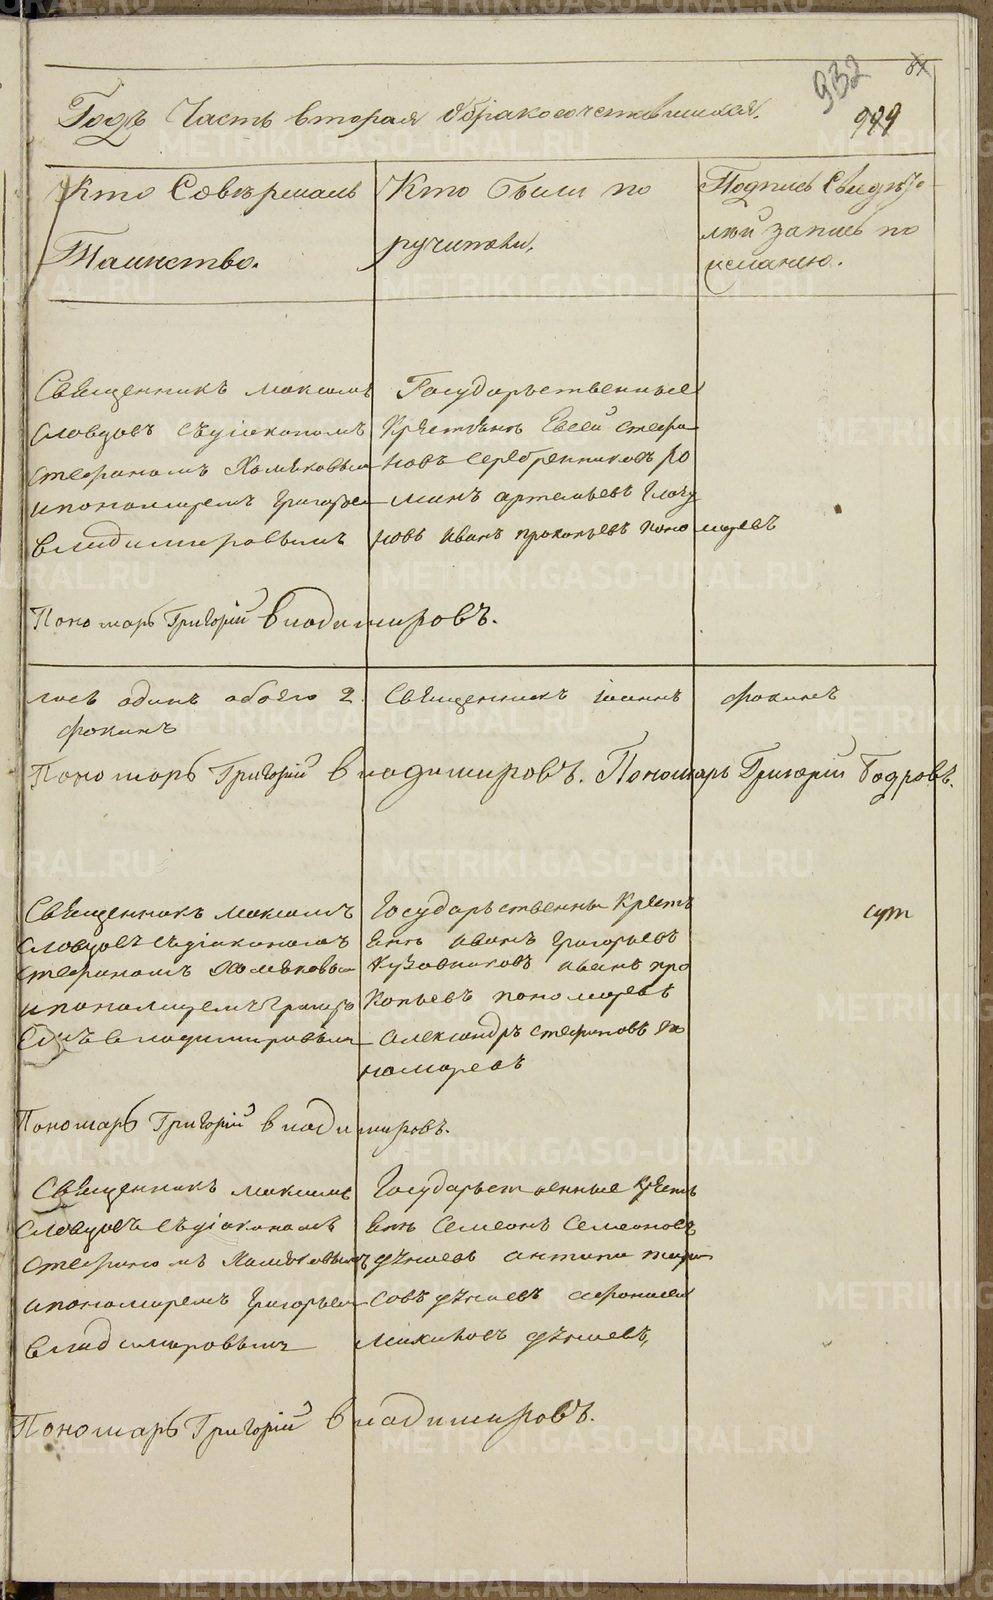 932
Годъ Часть вторая обракосочетавшихся.
Кто Совершалъ
Таинство.
Кто были по
ручители.
Подпись свидѣте
лей запись по
желанію.
Священникъ Максимъ
Словцовъ съдіакономъ
Стефаномъ Хомяковым
ипономаремъ Григорьем
владимировымъ
Государственные
Крестьянъ Евсей Стефа
новъ Серебренниковъ Ро
манъ артемьевъ Глаз
новъ Иванъ прокопьевъ пономаревъ
Пономарь Григорій владимировъ.
лось одинъ обоего 2. Священникъ Іоаннъ Фокинъ
Фокинъ
Пономарь Григорій владимировъ. Пономарь Григорій
Священникъ Максимъ
Словцовъ съдіакономъ
Стефаномъ Хомяковым
ипономаремъ Григорь
емъ владимировым
Государственны Кресть
янъ Иванъ Григорьевъ
Кузовниковъ Иванъ про
копьевъ пономаревъ
Александръ Стефановъ по
номаревъ
Пономарь Григорій владимировъ.
Священникъ Максимъ
Словцовъ съдіакономъ
Стефаномъ Хомяковымъ
ипономаремъ Григорьем
владимировымъ
Государственные Кресть
янъ Семеонъ Семеоновъ
антипа
Пономарь Григорій владимировъ.
METRIKI.GASO-URAL.RU